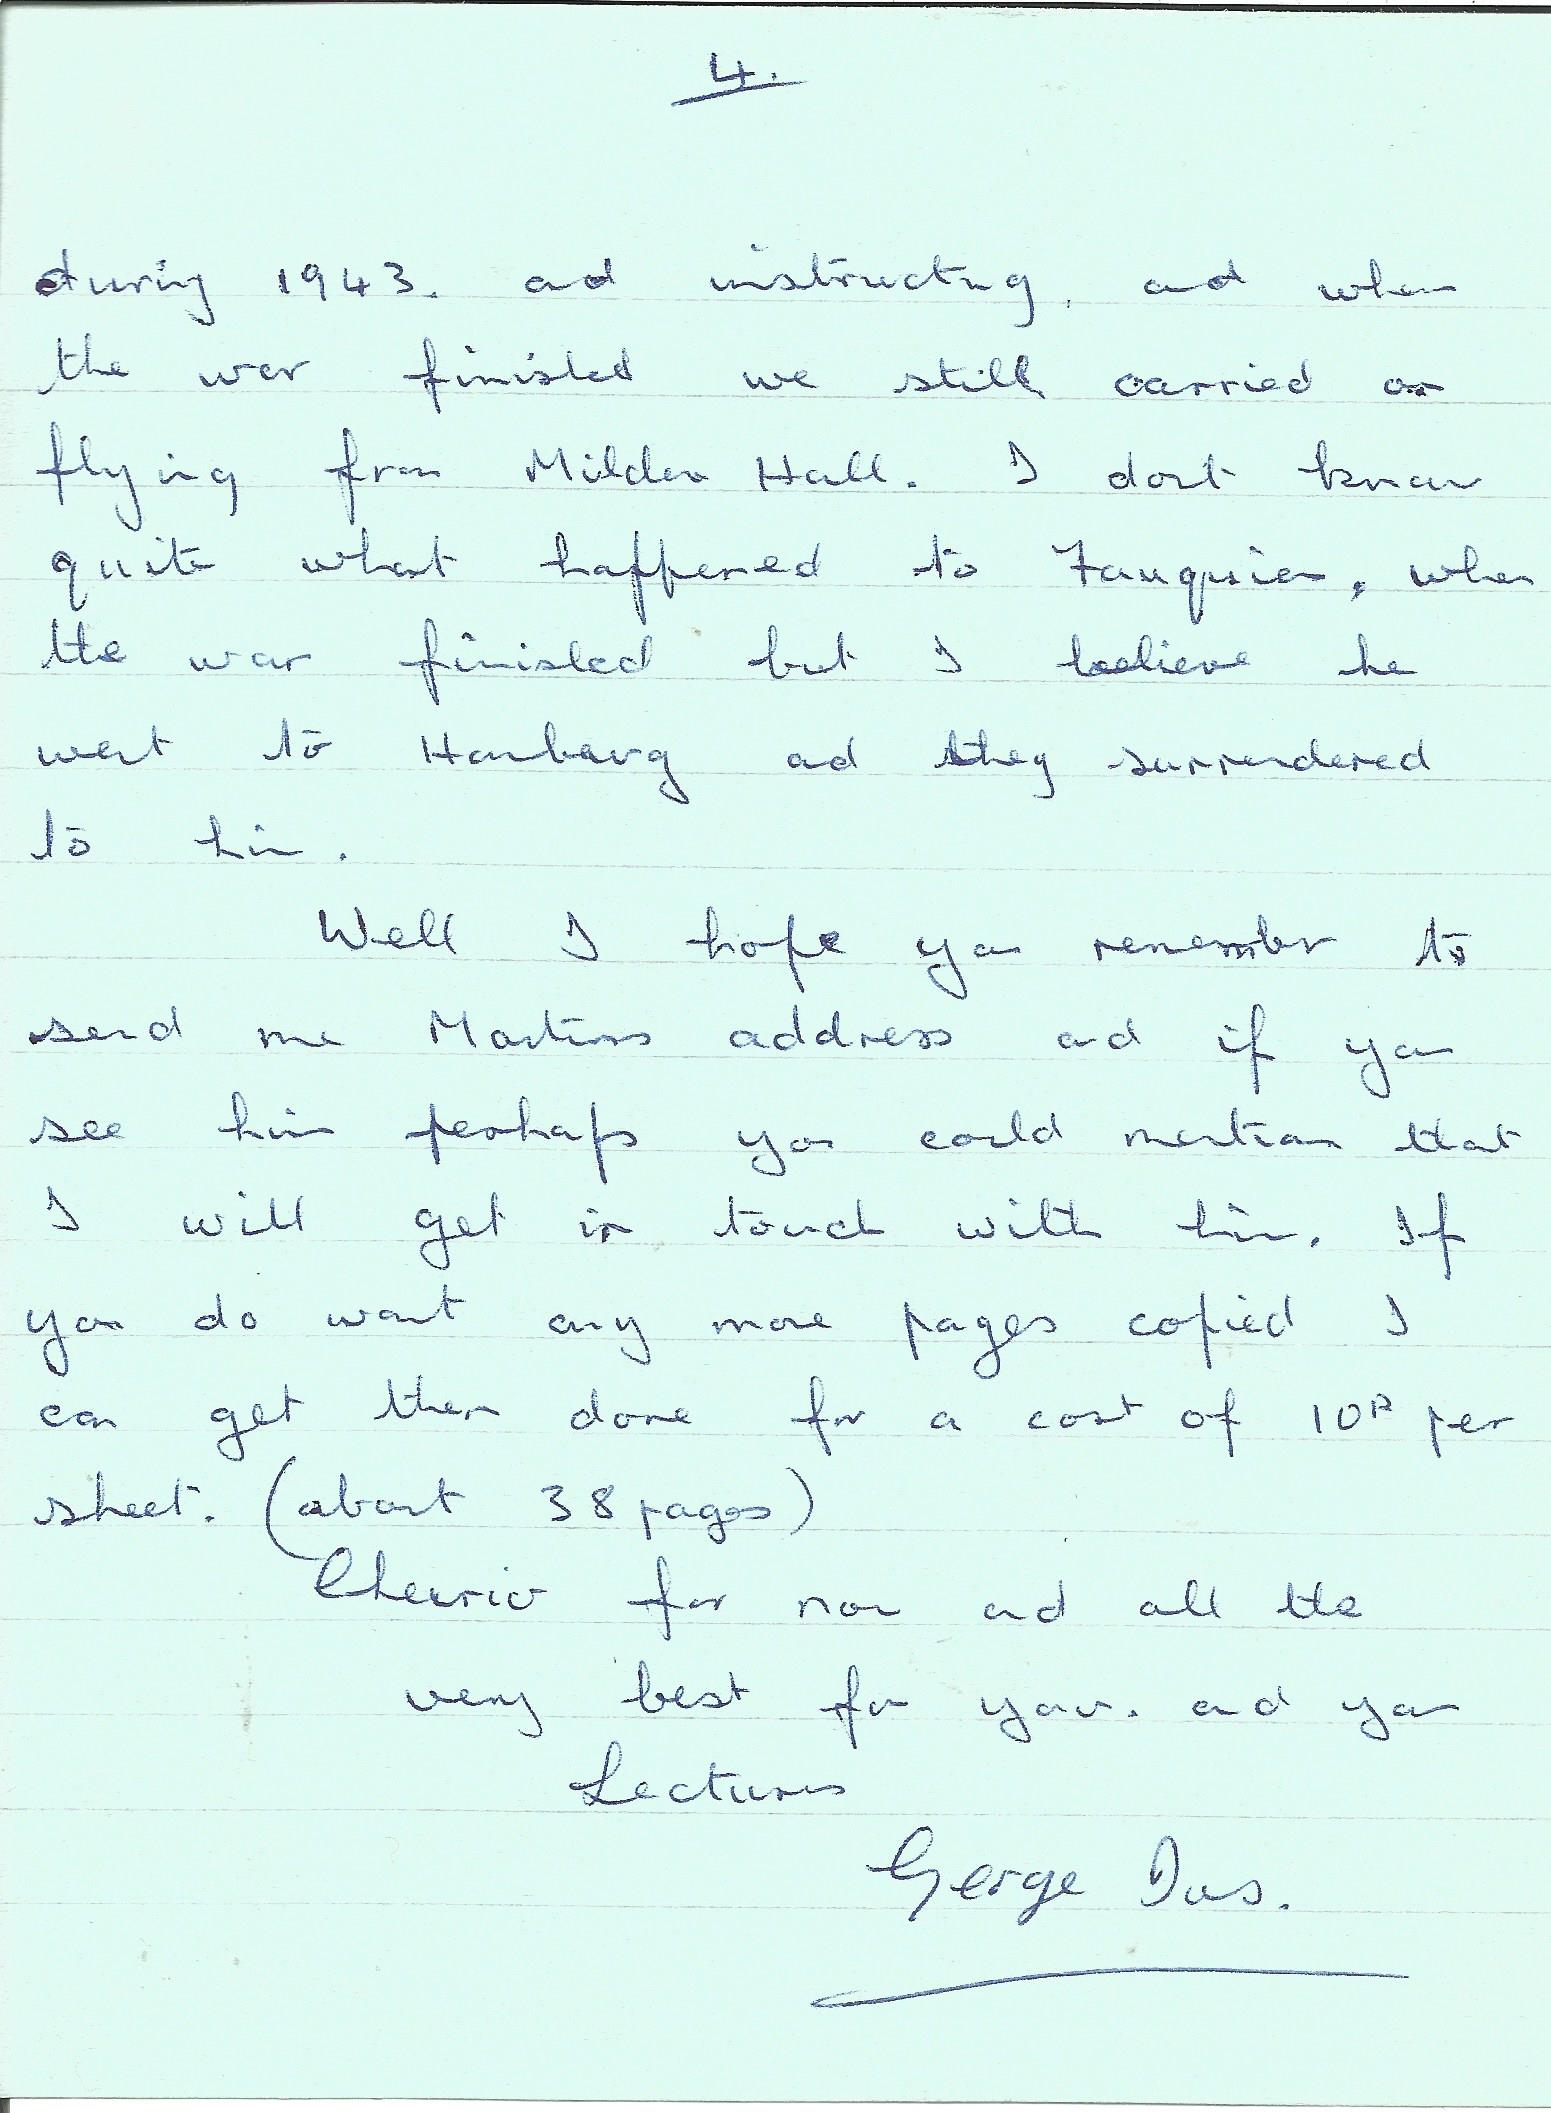 4.
during 1943. and instructing, and when
the war finished we still carried on
flying from Milden Hall. I dont know
quite what happened to Fauquier, when
the war finished but I believe he
went to Hamburg and they surrendered
to him.
Well I hope you remember to
send me Martins address and if you
see him perhaps you could mention that
I will get in touch with him. If
you do want any more pages copied I
can get them done for a cost of 10P per
sheet. (about 38 pages)
Cheerio for now and all the
very best for you. and your
Lectures
George